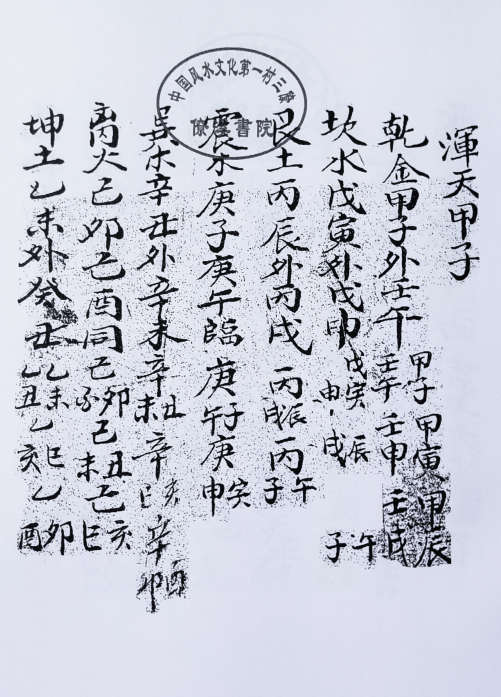 中国风水文化第一村三僚
書院
渾天甲子
乾金甲子外壬午
甲子甲寅甲辰
壬午壬申壬戌
坎水戊寅外戊申
戊寅辰午
申戌子
艮土丙辰外丙戌
丙辰戌丙午子
震木庚子庚午臨
庚子午庚寅申
巽木辛丑外辛未
辛丑未辛亥巳辛酉卯
离火己卯己酉同
己卯己丑未己亥巳
坤土乙未外癸丑
乙未巳卯
乙丑乙亥乙酉